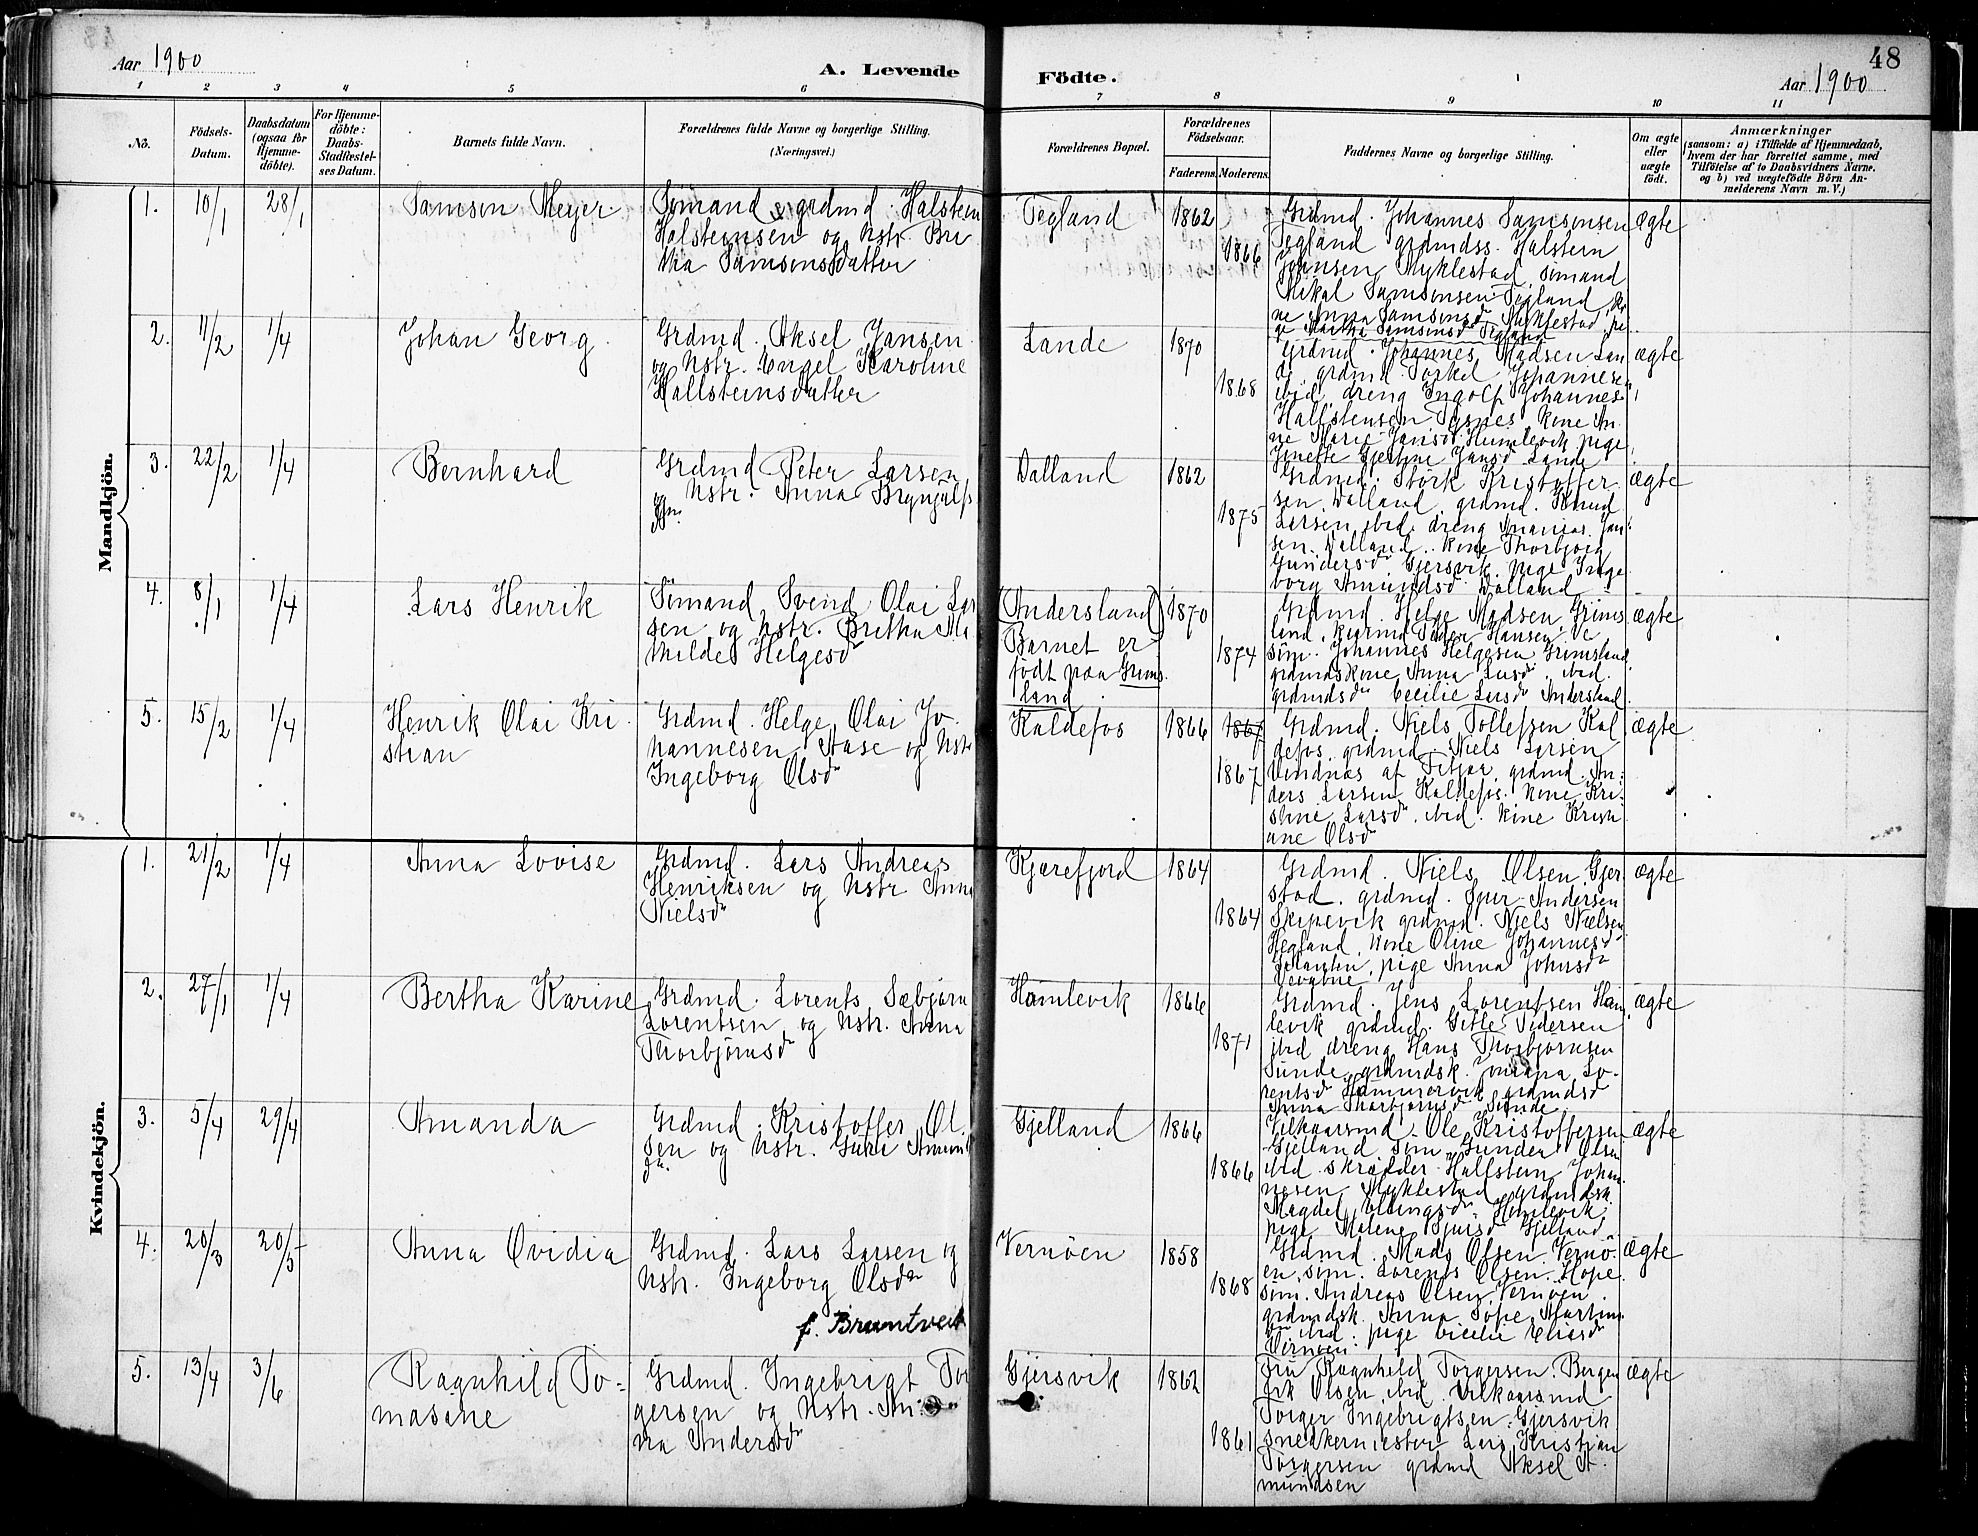 48
Aar 1900
A. Levende
Födte.
Aar 1900
1 2 3 4 5 6 7 8 9 10 11
No.
Födsels-Datum.
Daabsdatum (ogsaa for Hjemme-döbte).
For Hjemme-döbte: Daabs-Stadfæstel-ses Datum.
Barnets fulde Navn.
Forældrenes fulde Navne og borgerlige Stilling. (Næringsvei.)
Forældrenes Bopæl.
Forældrenes Födselsaar.
Faderens. Moderens.
Faddernes Navne og borgerlige Stilling.
Om ægte eller uægte födt.
Anmærkninger
(saasom: a) i Tilfælde af Hjemmedaab, hvem der har forrettet samme, med Tilföielse af to Daabsvidners Navne. og b) ved uægtefödte Börn An-melderens Navn m. V.)
Mandkjön.
1. 10/1 28/1 Samson Meyer
Sømand & grdmd. Halstein
Halsteinsen og Hstr. Bri
tha Samsonsdatter
Tegland 1862 1866
Grdmd. Johannes Samsonsen
Tegland grdmdss. Halstein
Johnsen Myklestad, sømand
Mikal Samsonsen Tegland, ko
ne Anna Samsonsdr Myklestad, pi
ge Martha Samsonsdr Tegland
ægte
2. 11/2 1/4 Johan Georg
Grdmd. Aksel Jansen
og Hstr. Engel Karoline
Hallsteinsdatter
Lande 1870 1868
Grdmd. Johannes Madsen Lan
de, grdmd. Torkel Johannesen
ibid, dreng Ingolf Johannes
Hallstensen Tysnes, kone An
ne Marie Jansdr Humlevik pige
Jenette Gjertine Jansd Lande
ægte
3. 22/2 1/4 Bernhard
Grdmd Peter Larsen
og Hstr. Anna Brynjulfs
Dalland 1862 1875
Grdmd. Størk Kristoffer
sen Dalland, grdmd. Knud
Larsen ibid, dreng Ananias Jan
sen Dalland, kone Thorbjørg
Gundersdr Gjersvik, pige Inge
borg Amundsdr Dalland
ægte
4. 8/1 1/4 Lars Henrik
Sømand Svend Olai Lar
sen og Hstr. Britha Ma
thilde Helgesdr
(Andersland)
Barnet er
født paa Grims
land
1870 1874
Grdmd. Helge Madsen Grims
land, Peder Hansen
søm. Johannes Helgesen Grimsland
grdmdskone Anna Larsdr ibid.
grdmdsdr Cecilie Larsdr Andersland
ægte
5. 15/2 1/4 Henrik Olai Kri
stian
Grdmd. Helge Olai Jo
hannesen Aase og Hstr
Ingeborg Olsdr
Kaldefos 1866 1867
1867
Grdmd. Niels Tollefsen Kal
defos, grdmd. Niels Larsen
Vindnæs af Fitjar, grdmd. An
ders Larsen Kaldefos, kone Kri
stine Larsdr ibid. kone Kristi
ane Olsdr
ægte
Kvindekjön.
1. 21/2 1/4 Anna Lovise
Grdmd. Lars Andreas
Henriksen og Hstr Anna
Nielsdr
Kjærefjord 1864 1864
Grdmd. Niels Olsen Gjer
stad, grdmd. Sjur Andersen
Skipevik grdmd. Niels Nielsen
Hegland, kone Oline Johannesdr
pige Anna Johnsdr
ægte
2. 27/1 1/4 Bertha Karine
Grdmd. Lorents Sæbjørn
Lorentsen og Hstr. Anna
Thorbjørnsdr
Humlevik 1866 1871
Grdmd. Jens Lorentsen Hum
levik grdmd. Gitle Pedersen
ibid dreng Hans Thorbjørnsen
Sunde, grdmdsk. Lo-
rentsdr Hammervik grdmdsd
Anna Thorbjørnsdr Sunde
ægte
3. 5/4 29/4 Amanda
Grdmd. Kristoffer Ol
sen og Hstr. Guri Amund
dr.
Gjelland 1866 1866
Vilkaarsmd. Ole Kristoffersen
Gjelland søm. Gunder Olsen
ibid skrædder Hallstein Johan
nesen Myklestad grdmdsk.
Magdel Ellingsdr Humlevik
pige Malene Gjelland
ægte
4. 20/3 20/5 Anna Ovidia
Grdmd. Lars Larsen og
Hstr. Ingeborg Olsdr
f. Bruntveit
Vernøen 1858 1868
Grdmd. Mads Olsen Vernø
en, søm. Lorents Olsen Hope
søm. Andreas Olsen Vernøen
grdmdsk. Anna Sofie Martins
dr ibid. pige Cicilie Eliasdr
Vernøen
ægte
5. 13/4 3/6 Ragnhild To-
masine
Grdmd. Ingebrigt Tor
gersen og Hstr. An
na Andersdr
Gjersvik 1862 1861
Fru Ragnhild Torgersen Bergen
Erik Olsen ibid. Vilkaarsmd
Torger Ingebrigtsen Gjersvik
snedkermester Lars Kristian
Torgersen grdmd Aksel A
mundsen
ægte